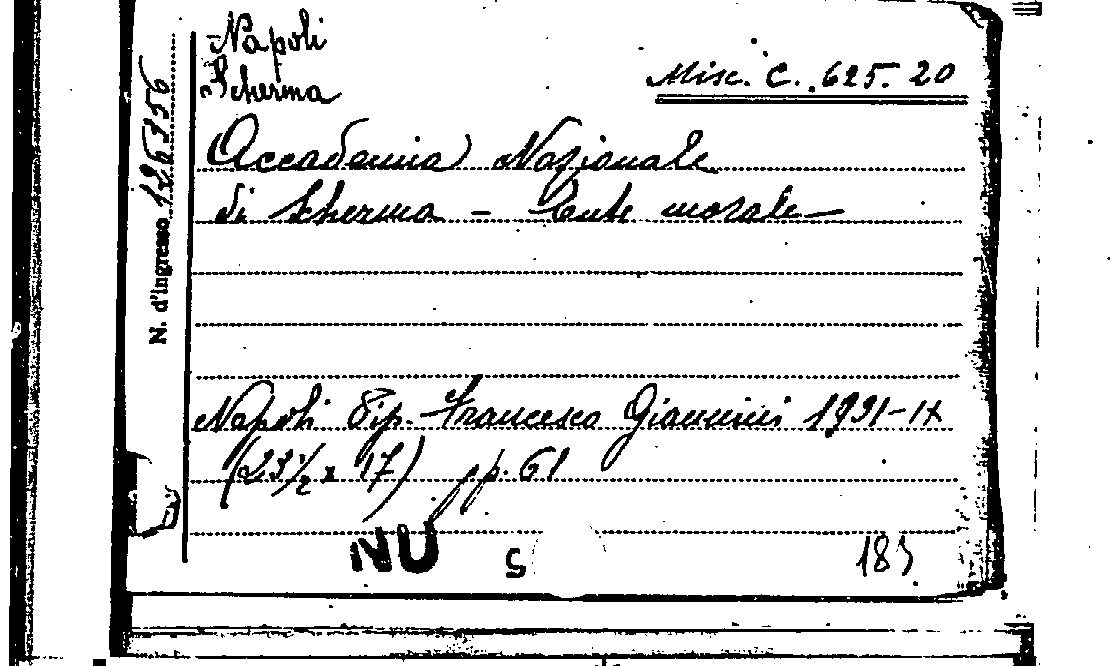 Napoli
Scherma
Misc. C. 625. 20
N. d'ingresso 126356
Accademia Nazionale
di Scherma – Ente morale –
Napoli Tip. Francesco Giannini 1931-IX
(23½ x 17) pp. 61
NU S
183